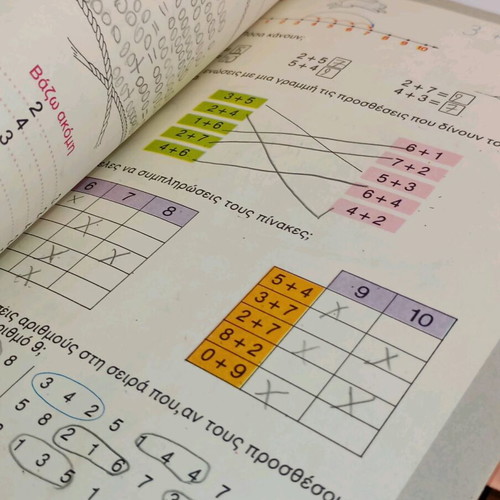 Βάζω ακόμη
2
4
3
1 2 3 4 5 6 7 8 9 10
κάνουν;
2+5 7
5+4 9
2+7=9
4+3=7
με μια γραμμή τις προσθέσεις που δίνουν το
3+5
2+4
1+6
2+7
4+6
6+1
7+2
5+3
6+4
4+2
να συμπληρώσεις τους πίνακες;
6 7 8
9 10
5+4
3+7
2+7
8+2
0+9
αριθμούς στη σειρά που, αν τους προσθέσου
9;
8
3 4 2 5
5 8 2 1 6 1 4 4 7
1 3 5 1 7